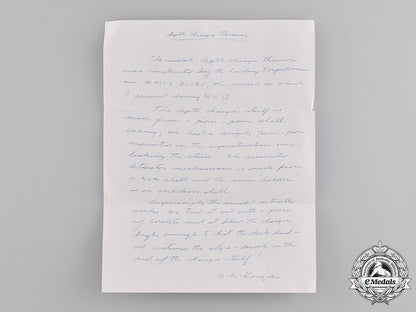 Depth Charge Thrower
The model depth charge thrower
was constructed by the Leading Torpedoman
on HMCS DIGBY, the vessel on which
I served during WW II.
The depth charge itself is
made from a pom-pom shell
casing; we had a single pom-pom
mounted on the superstructure over-
looking the stern. The simulated
detonator mechanism is made from
a .303 shell and the main 'holder'
is an oerlikon shell
Surprisingly the model actually
works. We tried it out with a piece
of cordite and it blew the charge
high enough to hit the deck head-
and the edge - on the
end of the charge itself!
eMedals